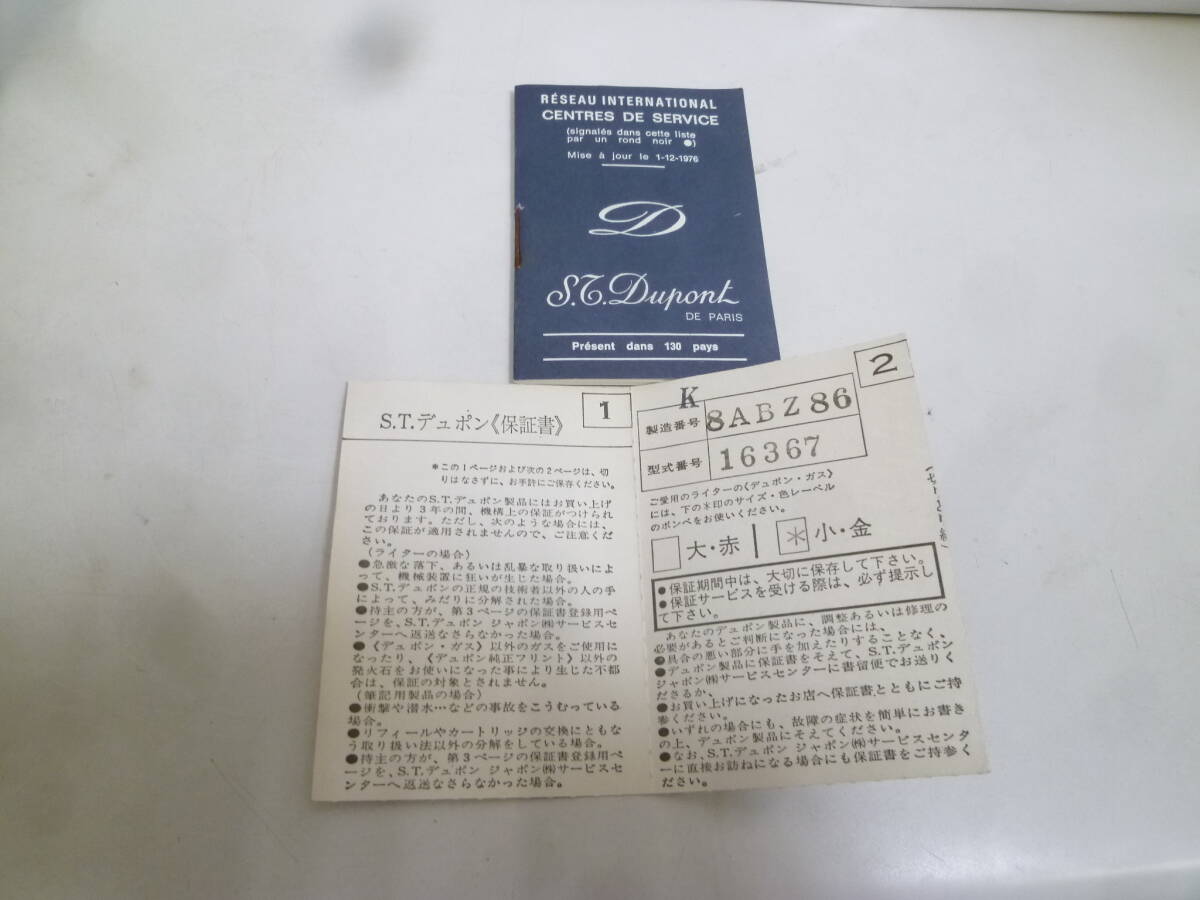 RÉSEAU INTERNATIONAL
CENTRES DE SERVICE
(signalés dans cette liste
par un rond noir ●)
Mise à jour le 1-12-1976
D
S.T. Dupont
DE PARIS
Présent dans 130 pays
S.T.デュポン《保証書》
1
*この1ページおよび次の2ページは、切
りはなさずに、お手許にご保存ください。
あなたのS.T.デュポン製品にはお買い上げ
の日より3年の間、機構上の保証がつけられ
ております。ただし、次のような場合には、
この保証が適用されませんので、ご注意くだ
さい。
(ライターの場合)
●急激な落下、あるいは乱暴な取り扱いによ
って、機械装置に狂いが生じた場合。
●S.T.デュポンの正規の技術者以外の人の手
によって、みだりに分解された場合。
●持主の方が、第3ページの保証書登録用ペ
ージを、S.T.デュポン ジャポン㈱サービスセ
ンターへ返送なさらなかった場合。
●《デュポン・ガス》以外のガスをご使用に
なったり、《デュポン純正フリント》以外の
発火石をお使いになった事により生じた不都
合は、保証の対象とされません。
(筆記用製品の場合)
●衝撃や潜水…などの事故をこうむっている
場合。
●リフィールやカートリッジの交換にともな
う取り扱い法以外の分解をしている場合。
●持主の方が、第3ページの保証書登録用ペ
ージを、S.T.デュポン ジャポン㈱サービスセ
ンターへ返送なさらなかった場合。
2
K
製造番号 8ABZ86
型式番号 16367
ご愛用のライターの《デュポン・ガス》
には、下の*印のサイズ・色レーベル
のボンベをお使いください。
大・赤 * 小・金
●保証期間中は、大切に保存して下さい。
●保証サービスを受ける際は、必ず提示し
て下さい。
あなたのデュポン製品に、調整あるいは修理の
必要があるとご判断になった場合には、
●具合の悪い部分に手を加えたりすることなく、
●デュポン製品に保証書をそえて、S.T.デュポン
ジャポン㈱サービスセンターに書留便でお送りく
ださるか、
●お買い上げになったお店へ保証書とともにご持
参ください。
●いずれの場合にも、故障の症状を簡単にお書き
の上、デュポン製品にそえてください。
●なお、S.T.デュポン ジャポン㈱サービスセンタ
ーに直接お訪ねになる場合にも保証書をご持参く
ださい。